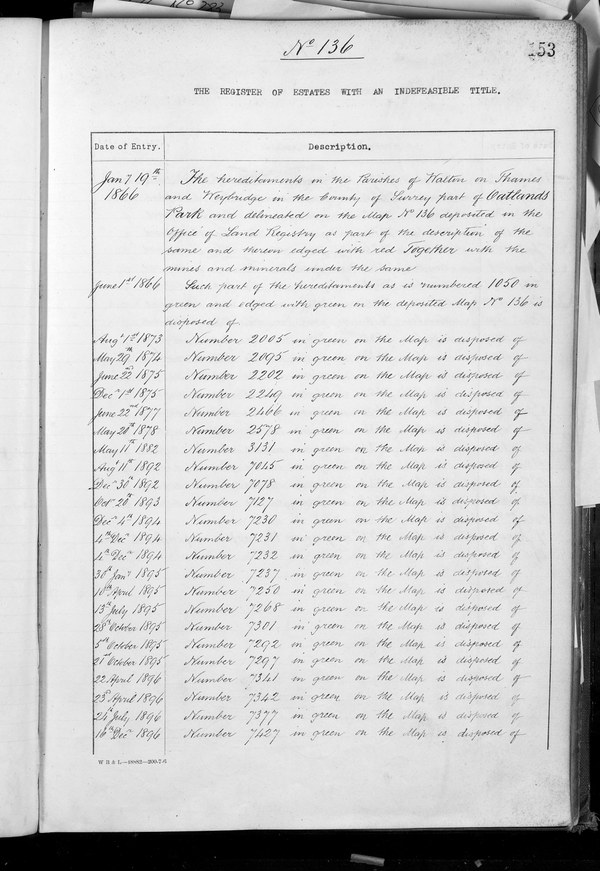 Nº 136
153
THE REGISTER OF ESTATES WITH AN INDEFEASIBLE TITLE.
Date of Entry. Description.
Jany 19th 1866 The hereditaments in the Parishes of Walton on Thames
and Weybridge in the County of Surrey part of Oatlands
Park and delineated on the Map Nº 136 deposited in the
Office of Land Registry as part of the description of the
same and thereon edged with red Together with the
mines and minerals under the same
June 1st 1866 Such part of the hereditaments as is numbered 1050 in
green and edged with green on the deposited Map Nº 136 is
disposed of
Augt 1st 1873 Number 2005 in green on the Map is disposed of
May 29th 1874 Number 2095 in green on the Map is disposed of
June 22nd 1875 Number 2202 in green on the Map is disposed of
Decr 1st 1875 Number 2249 in green on the Map is disposed of
June 22nd 1877 Number 2466 in green on the Map is disposed of
May 20th 1878 Number 2578 in green on the Map is disposed of
May 11th 1882 Number 3131 in green on the Map is disposed of
Augt 11th 1892 Number 7045 in green on the Map is disposed of
Decr 30th 1892 Number 7078 in green on the Map is disposed of
Octr 20th 1893 Number 7127 in green on the Map is disposed of
Decr 4th 1894 Number 7230 in green on the Map is disposed of
4th Decr 1894 Number 7231 in green on the Map is disposed of
4th Decr 1894 Number 7232 in green on the Map is disposed of
30th Jany 1895 Number 7237 in green on the Map is disposed of
10th April 1895 Number 7250 in green on the Map is disposed of
13th July 1895 Number 7268 in green on the Map is disposed of
28th October 1895 Number 7301 in green on the Map is disposed of
5th October 1895 Number 7292 in green on the Map is disposed of
21st October 1895 Number 7297 in green on the Map is disposed of
22 April 1896 Number 7341 in green on the Map is disposed of
23d April 1896 Number 7342 in green on the Map is disposed of
24th July 1896 Number 7377 in green on the Map is disposed of
16th Decr 1896 Number 7427 in green on the Map is disposed of